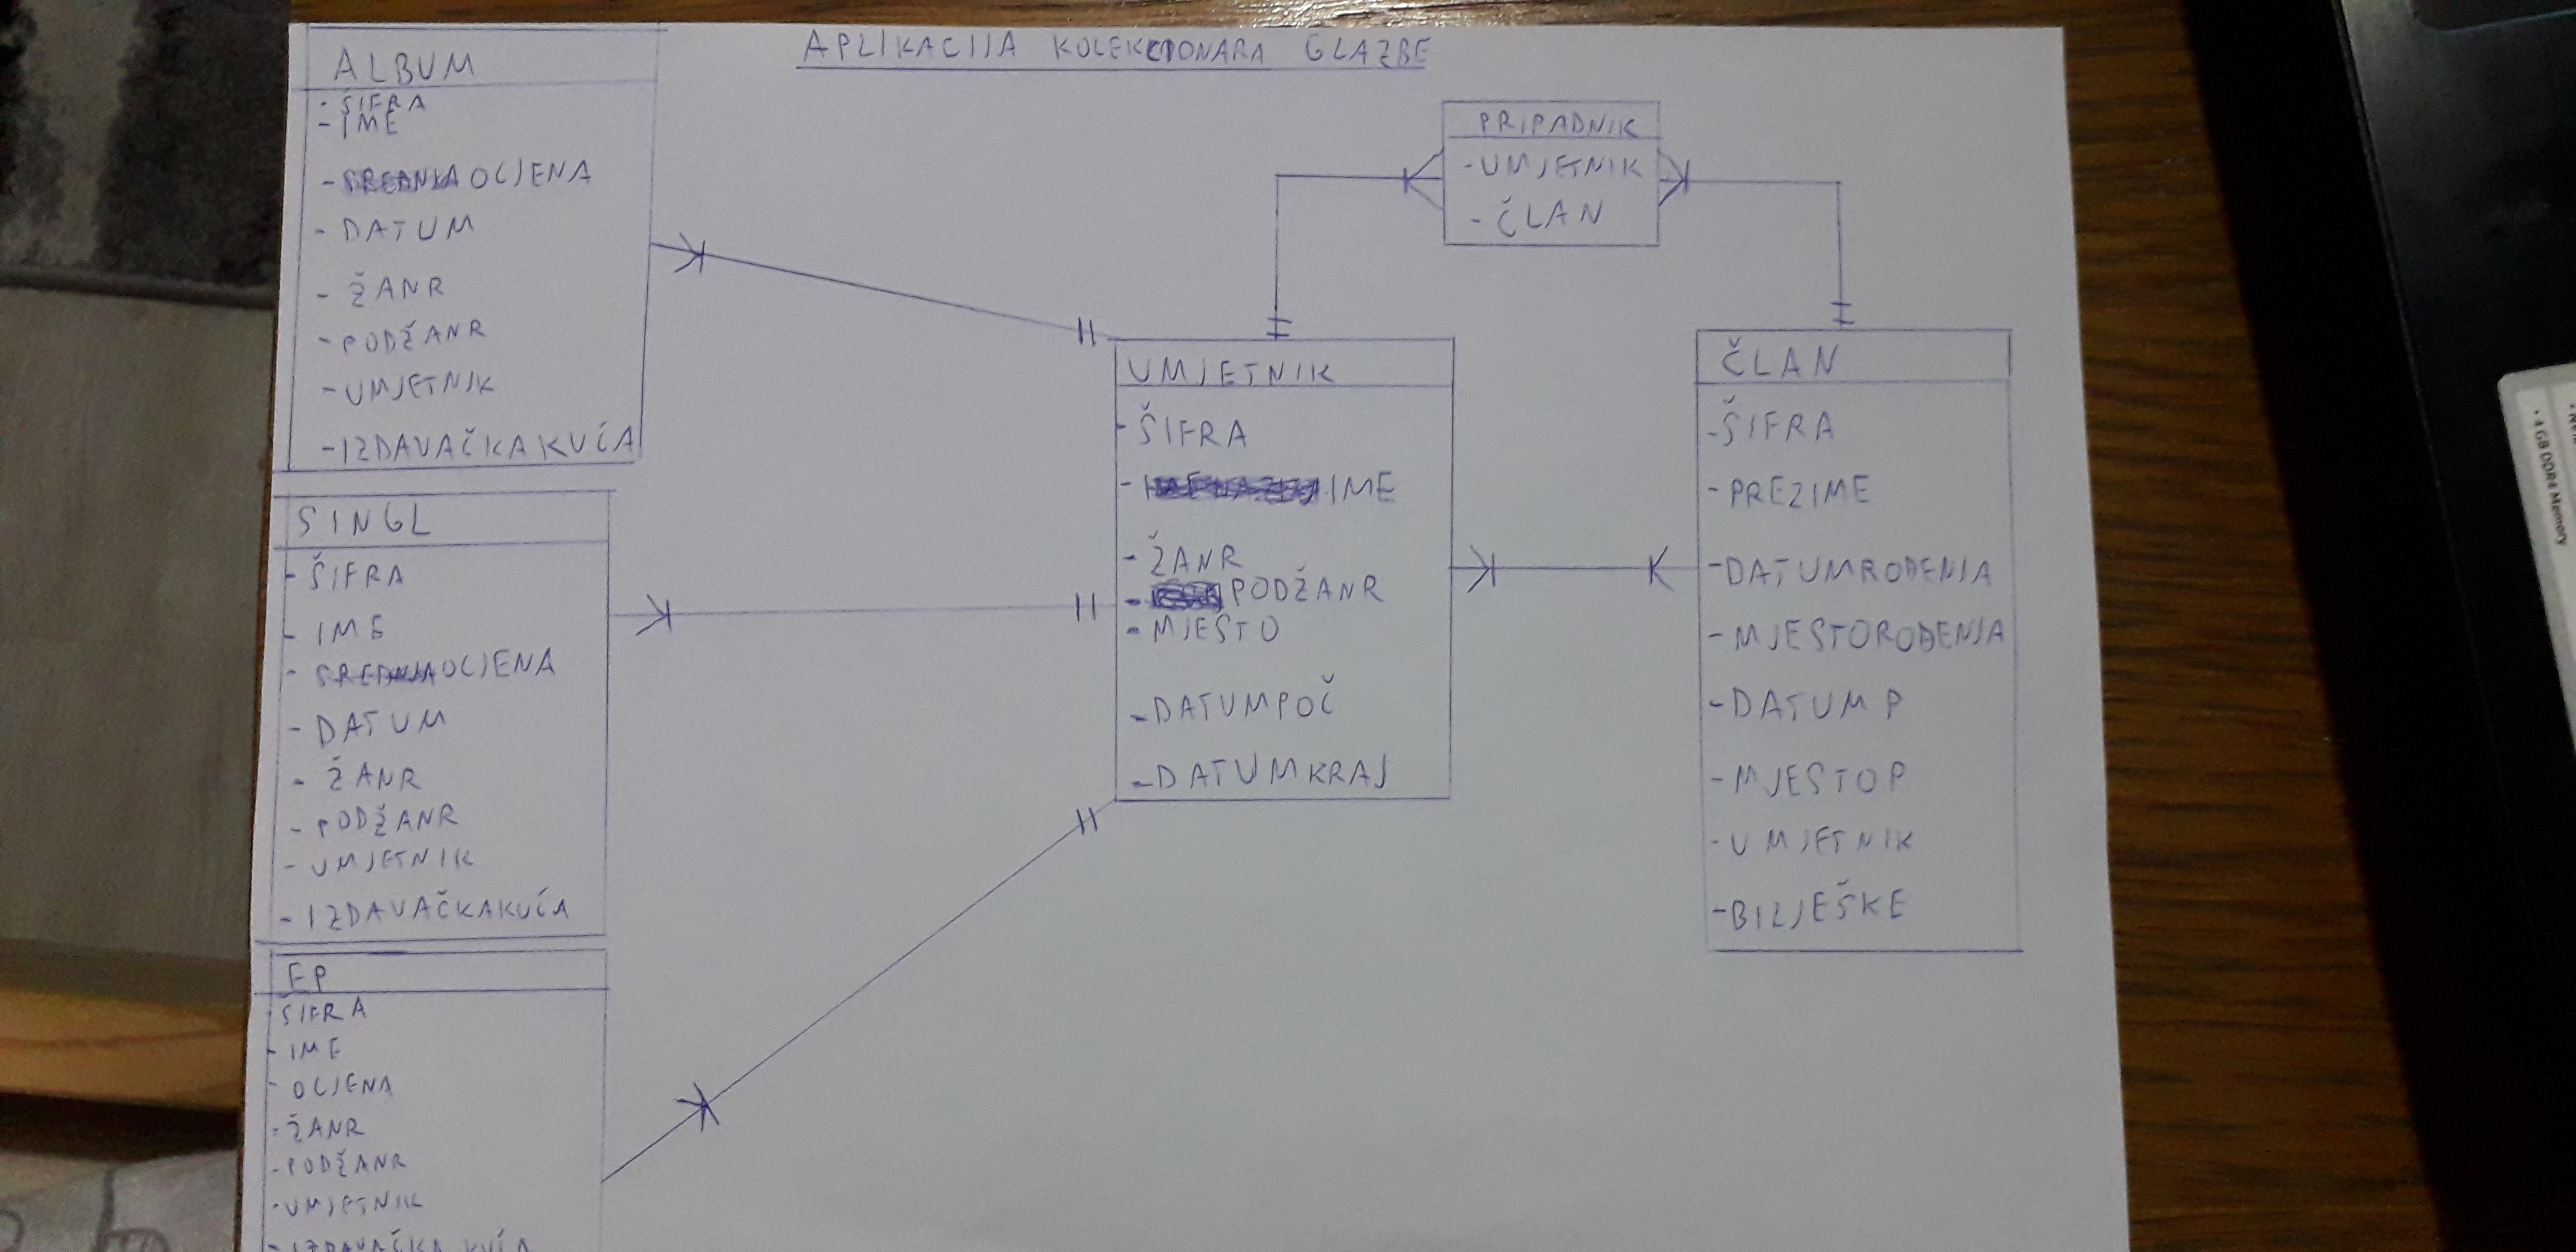 APLIKACIJA KOLEKCIONARA GLAZBE
ALBUM
- ŠIFRA
- IME
- OCJENA
- DATUM
- ŽANR
- PODŽANR
- UMJETNIK
- IZDAVAČKAKUĆA
SINGL
- ŠIFRA
- IME
- OCJENA
- DATUM
- ŽANR
- PODŽANR
- UMJETNIK
- IZDAVAČKAKUĆA
EP
ŠIFRA
- IME
- OCJENA
- ŽANR
- PODŽANR
- UMJETNIK
- IZDAVAČKA KUĆA
PRIPADNIK
- UMJETNIK
- ČLAN
UMJETNIK
- ŠIFRA
- IME
- ŽANR
- PODŽANR
- MJESTO
- DATUMPOČ
- DATUMKRAJ
ČLAN
- ŠIFRA
- PREZIME
- DATUMROĐENJA
- MJESTOROĐENJA
- DATUM P
- MJESTO P
- UMJETNIK
- BILJEŠKE
• 4 GB DDR4 Memory